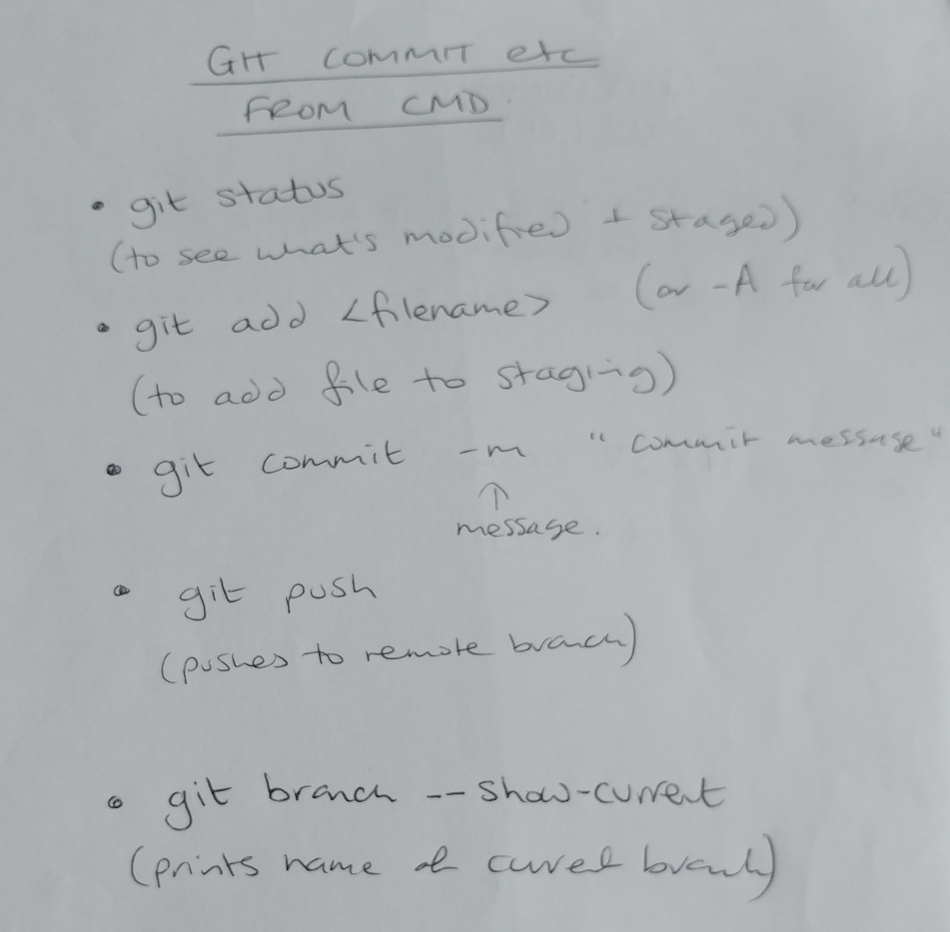 GIT COMMIT etc
FROM CMD.
• git status
(to see what's modified + staged)
• git add <filename> (or -A for all)
(to add file to staging)
• git commit -m "commit message"
↑
message.
• git push
(pushes to remote branch)
• git branch --show-current
(prints name of current branch)